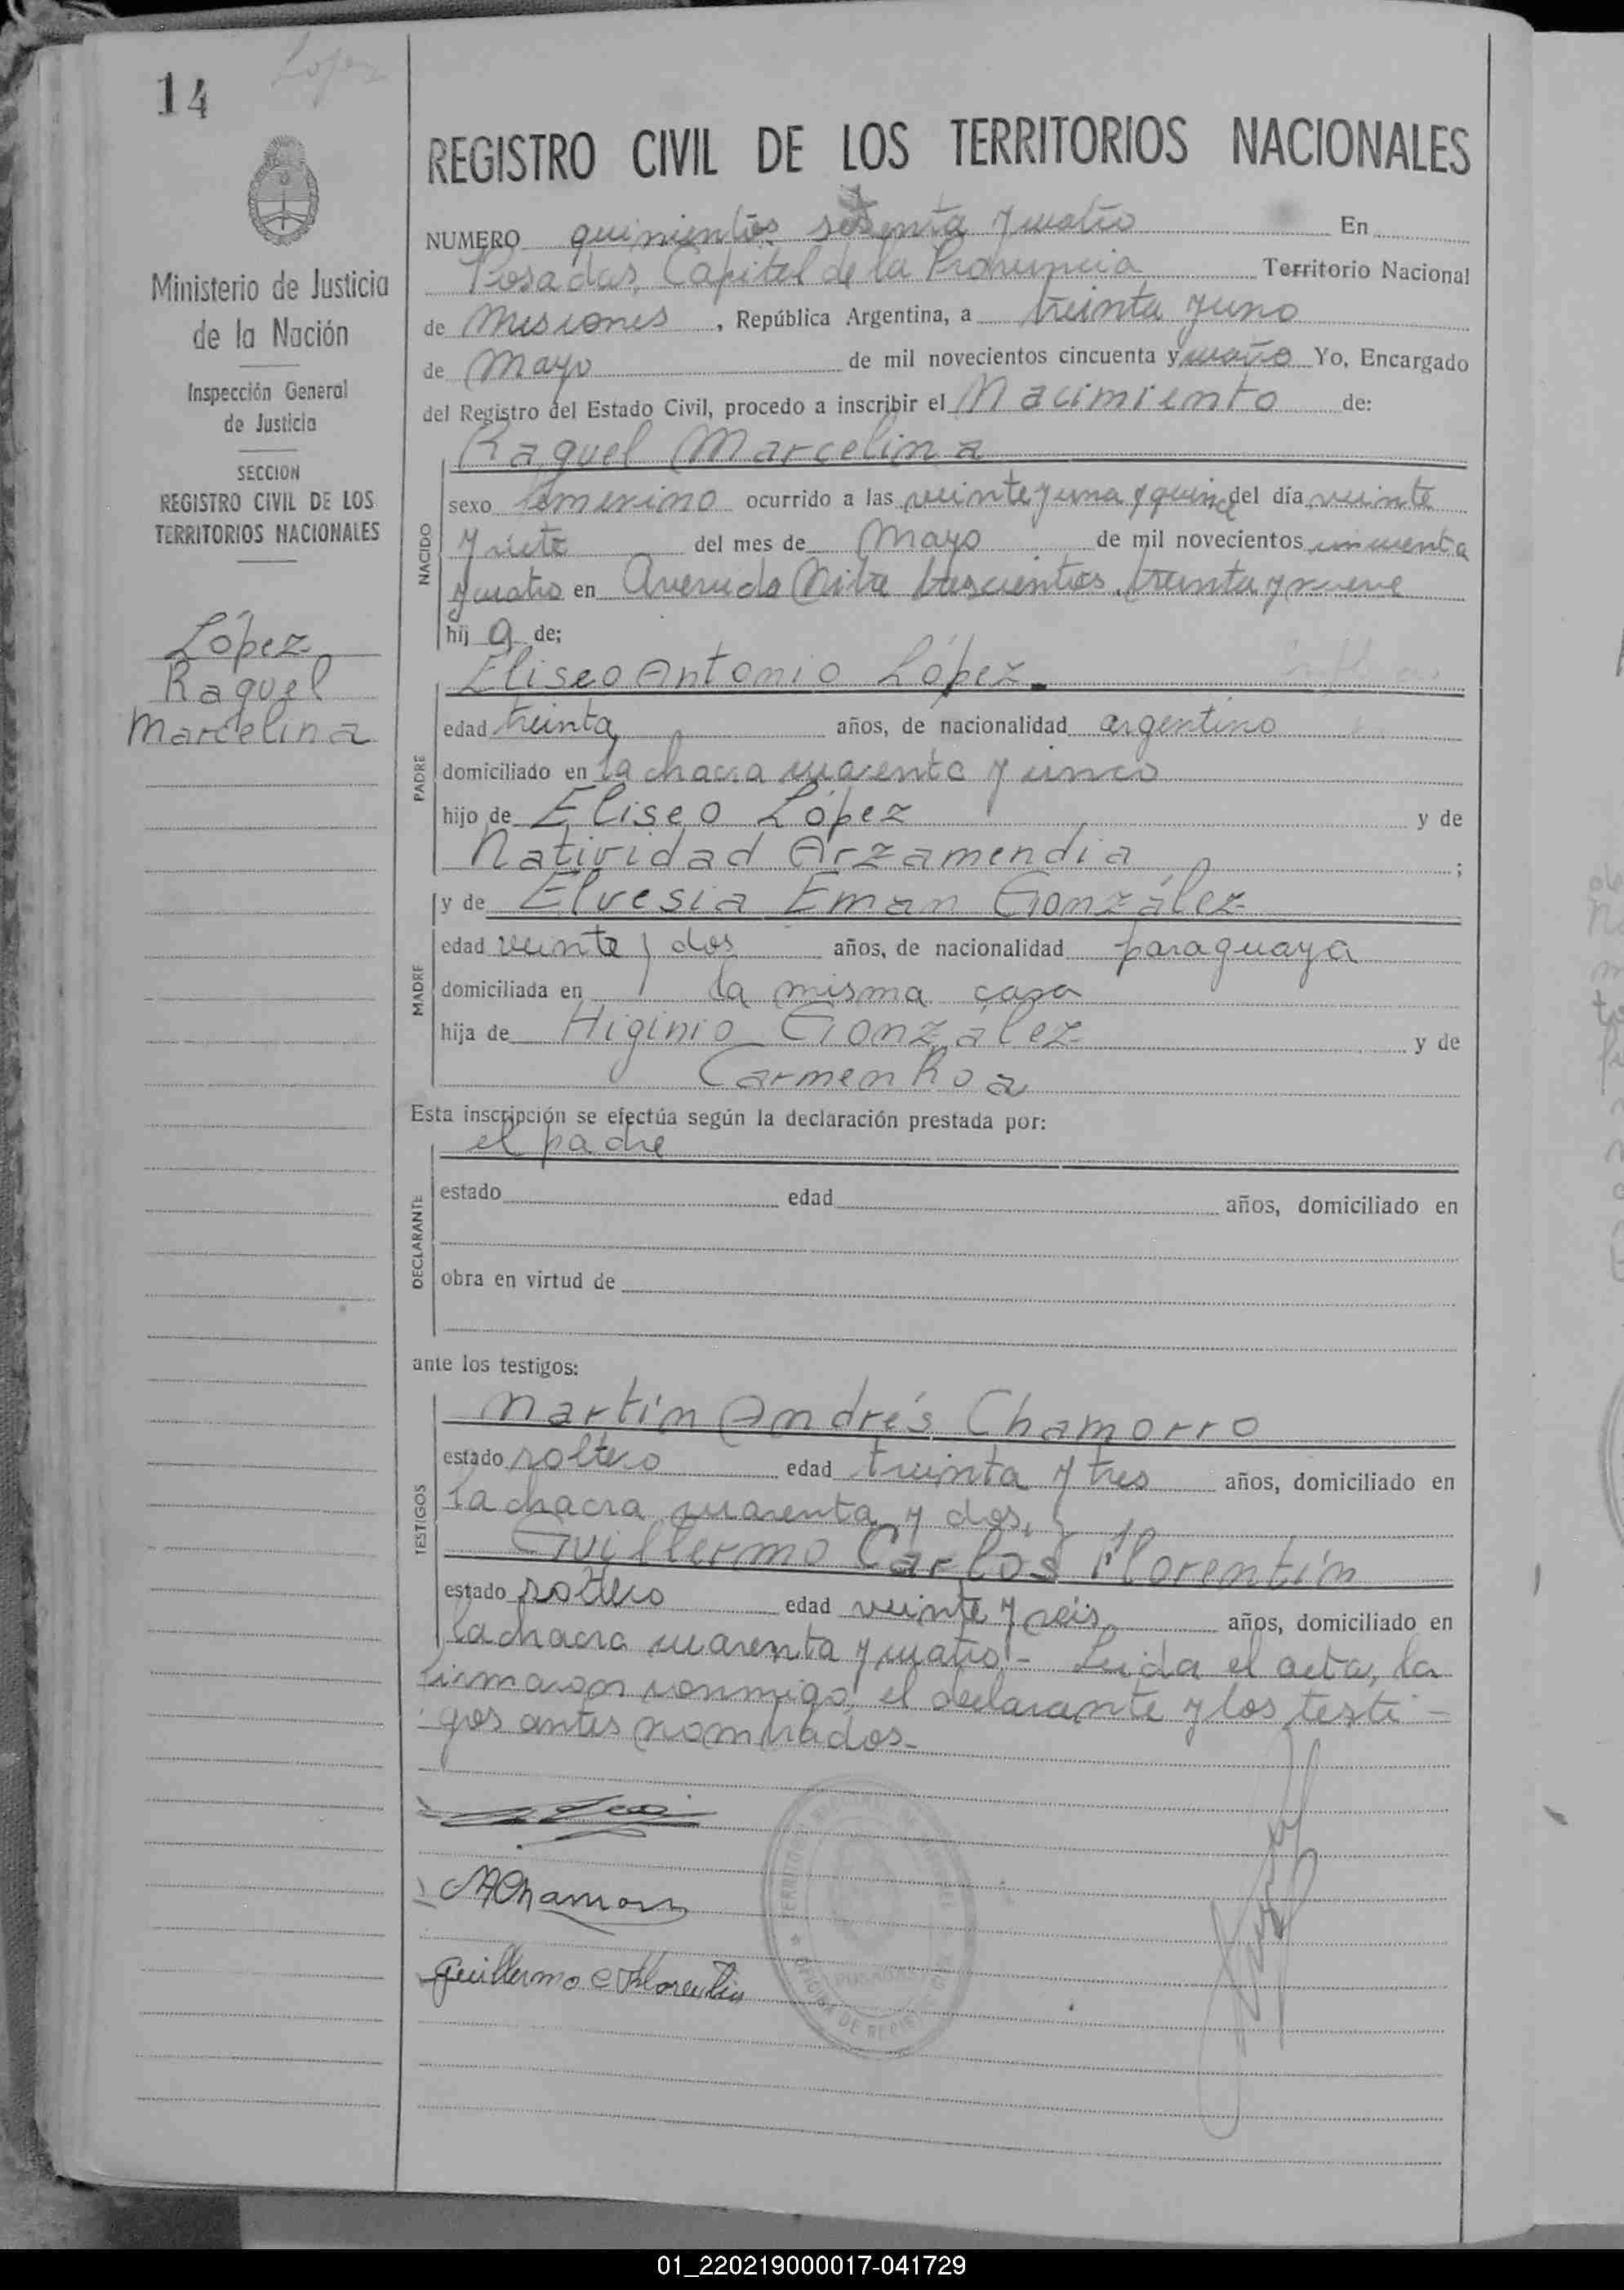 Lopez
14
REGISTRO CIVIL DE LOS TERRITORIOS NACIONALES
NUMERO quinientos setenta y cuatro En
Posadas, Capital de la Provincia Territorio Nacional
de Misiones, República Argentina, a treinta y uno
de Mayo de mil novecientos cincuenta y cuatro Yo, Encargado
del Registro del Estado Civil, procedo a inscribir el Nacimiento de:
Raquel Marcelina
NACIDO
sexo femenino ocurrido a las veinte y una y quince del día veinte
y siete del mes de Mayo de mil novecientos cincuenta
y cuatro en Avenida Mitre trescientos treinta y nueve
hij a de;
Eliseo Antonio López
PADRE
edad treinta años, de nacionalidad argentino
domiciliado en la chacra cuarenta y cinco
hijo de Eliseo López y de
Natividad Arzamendia ;
y de Elvesia Eman González
MADRE
edad veinte y dos años, de nacionalidad paraguaya
domiciliada en la misma casa
hija de Higinio González y de
Carmen Roa
Esta inscripción se efectúa según la declaración prestada por:
el padre
DECLARANTE
estado edad años, domiciliado en
obra en virtud de
ante los testigos:
Martín Andrés Chamorro
TESTIGOS
estado soltero edad treinta y tres años, domiciliado en
la chacra cuarenta y dos, y
Guillermo Carlos Florentín
estado soltero edad veinte y seis años, domiciliado en
la chacra cuarenta y cuatro.- Leida el acta, la
firmaron conmigo, el declarante y los testi-
gos antes nombrados.-
MAChamorro
Guillermo C Florentin
POSADAS
Ministerio de Justicia
de la Nación
Inspección General
de Justicia
SECCION
REGISTRO CIVIL DE LOS
TERRITORIOS NACIONALES
López
Raquel
Marcelina
01_220219000017-041729